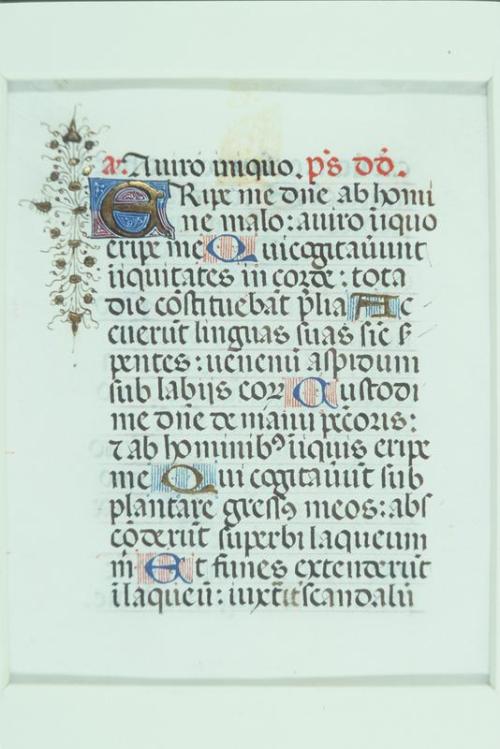 a. A viro iniquo. p̄s dd̄.
ERipe me dñe ab homi
ne malo: a viro iīquo
eripe me Qui cogitaverūt
iīquitates in corde: tota
die cōstituebāt p̄lia Ac
cuerūt linguas suas sic s̄
pentes: venenū aspidum
sub labijs eoꝝ Custodi
me dñe de manu pc̄coris:
⁊ ab hominibꝰ iīquis eripe
me Qui cogitaverūt sub
plantare gressꝰ meos: abs
cōderūt superbi laqueum
m̄ Et funes extenderūt
ī laqueū: iuxta it scandalū